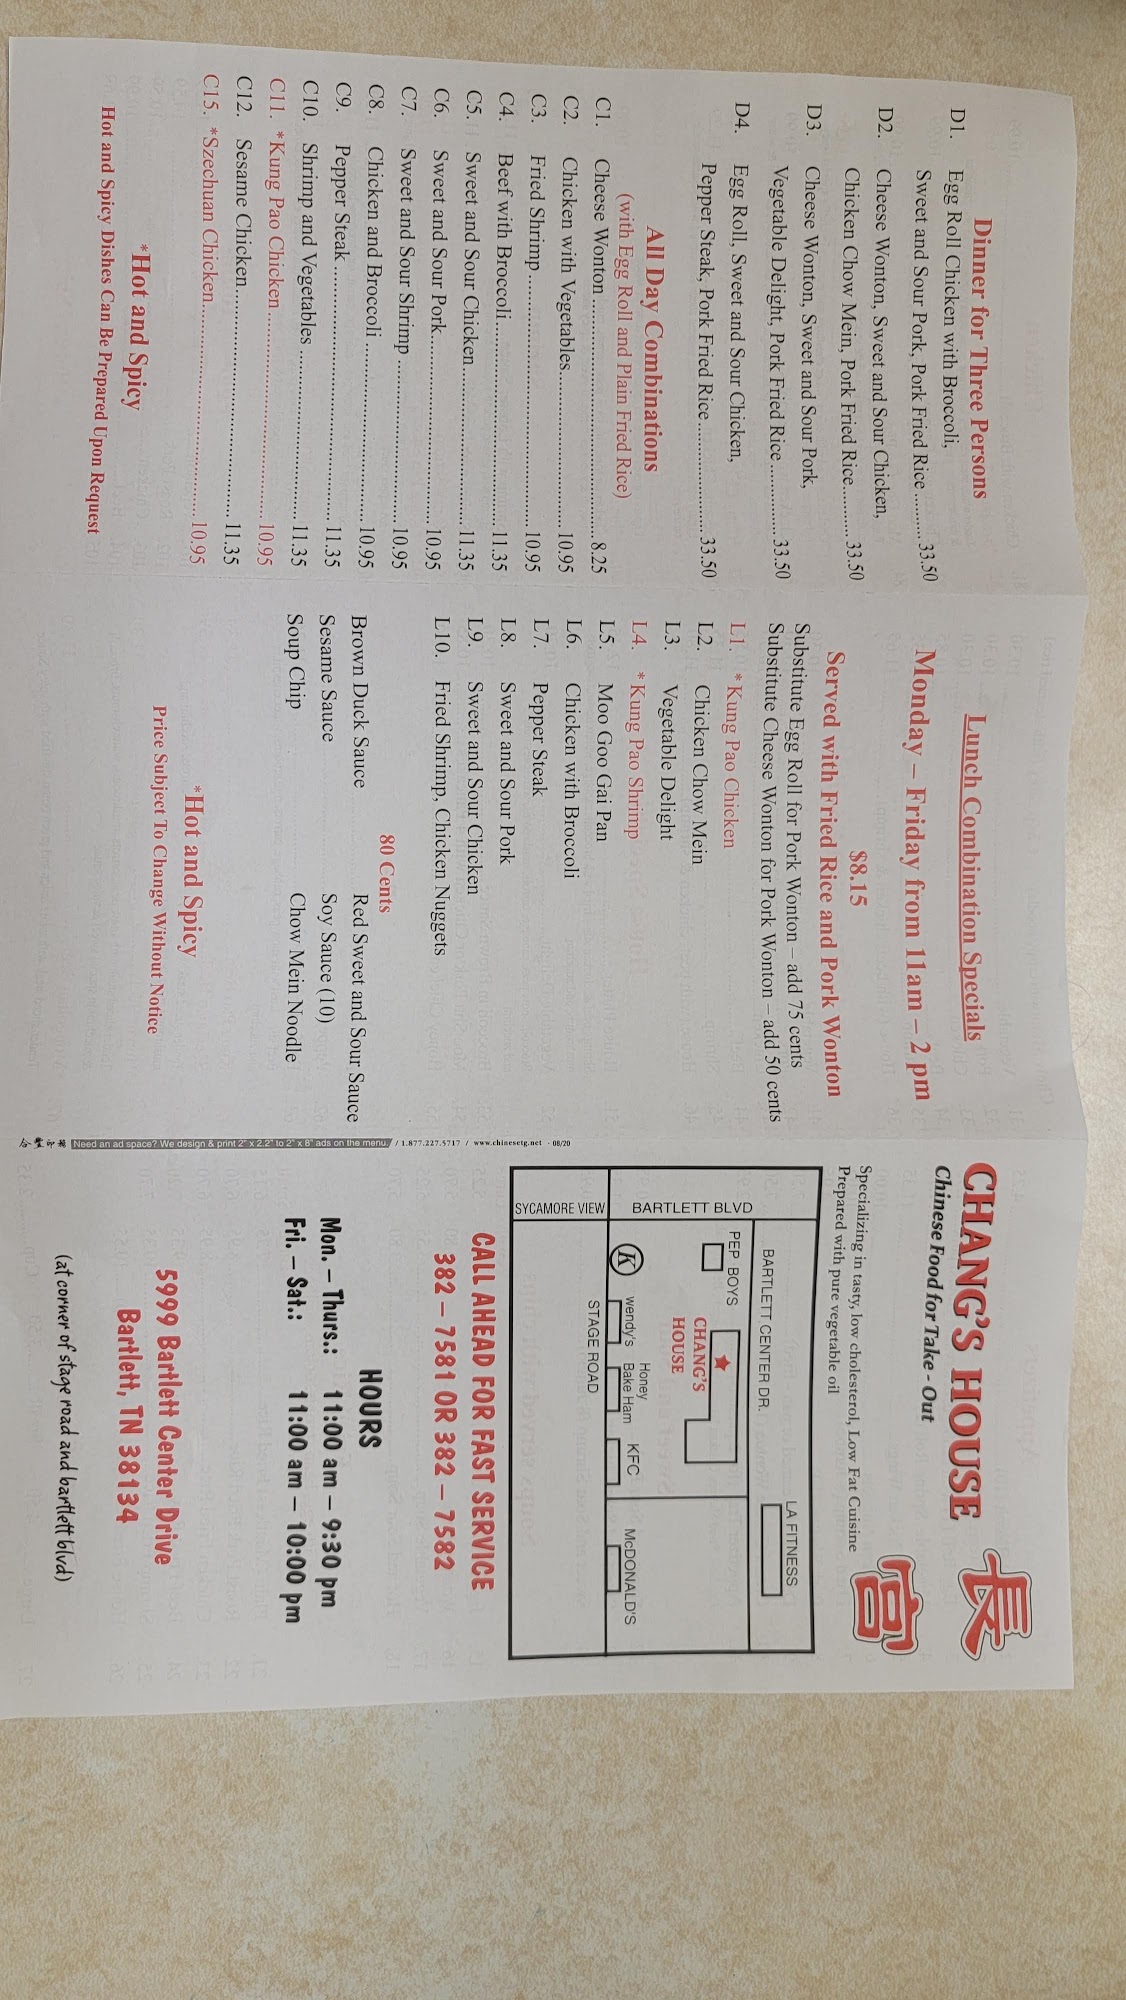 Dinner for Three Persons
D1. Egg Roll Chicken with Broccoli,
Sweet and Sour Pork, Pork Fried Rice .......... 33.50
D2. Cheese Wonton, Sweet and Sour Chicken,
Chicken Chow Mein, Pork Fried Rice.......... 33.50
D3. Cheese Wonton, Sweet and Sour Pork,
Vegetable Delight, Pork Fried Rice.............. 33.50
D4. Egg Roll, Sweet and Sour Chicken,
Pepper Steak, Pork Fried Rice...................... 33.50
All Day Combinations
(with Egg Roll and Plain Fried Rice)
C1. Cheese Wonton ............................................. 8.25
C2. Chicken with Vegetables............................. 10.95
C3. Fried Shrimp ................................................ 10.95
C4. Beef with Broccoli....................................... 11.35
C5. Sweet and Sour Chicken.............................. 11.35
C6. Sweet and Sour Pork.................................... 10.95
C7. Sweet and Sour Shrimp ............................... 10.95
C8. Chicken and Broccoli .................................. 10.95
C9. Pepper Steak ................................................ 11.35
C10. Shrimp and Vegetables ................................ 11.35
C11. *Kung Pao Chicken...................................... 10.95
C12. Sesame Chicken........................................... 11.35
C15. *Szechuan Chicken....................................... 10.95
*Hot and Spicy
Hot and Spicy Dishes Can Be Prepared Upon Request
Lunch Combination Specials
Monday – Friday from 11am – 2 pm
$8.15
Served with Fried Rice and Pork Wonton
Substitute Egg Roll for Pork Wonton – add 75 cents
Substitute Cheese Wonton for Pork Wonton – add 50 cents
L1. *Kung Pao Chicken
L2. Chicken Chow Mein
L3. Vegetable Delight
L4. *Kung Pao Shrimp
L5. Moo Goo Gai Pan
L6. Chicken with Broccoli
L7. Pepper Steak
L8. Sweet and Sour Pork
L9. Sweet and Sour Chicken
L10. Fried Shrimp, Chicken Nuggets
80 Cents
Brown Duck Sauce Red Sweet and Sour Sauce
Sesame Sauce Soy Sauce (10)
Soup Chip Chow Mein Noodle
*Hot and Spicy
Price Subject To Change Without Notice
Need an ad space? We design & print 2" x 2.2" to 2" x 8" ads on the menu. / 1.877.227.5717 / www.chinesetg.net · 08/20
CHANG'S HOUSE
長宮
Chinese Food for Take - Out
Specializing in tasty, low cholesterol, Low Fat Cuisine
Prepared with pure vegetable oil
BARTLETT CENTER DR.
LA FITNESS
BARTLETT BLVD
PEP BOYS
CHANG'S
HOUSE
K
wendy's
Honey
Bake Ham
KFC
McDONALD'S
STAGE ROAD
SYCAMORE VIEW
CALL AHEAD FOR FAST SERVICE
382 – 7581 OR 382 – 7582
HOURS
Mon. – Thurs.: 11:00 am – 9:30 pm
Fri. – Sat.: 11:00 am – 10:00 pm
5999 Bartlett Center Drive
Bartlett, TN 38134
(at corner of stage road and bartlett blvd)